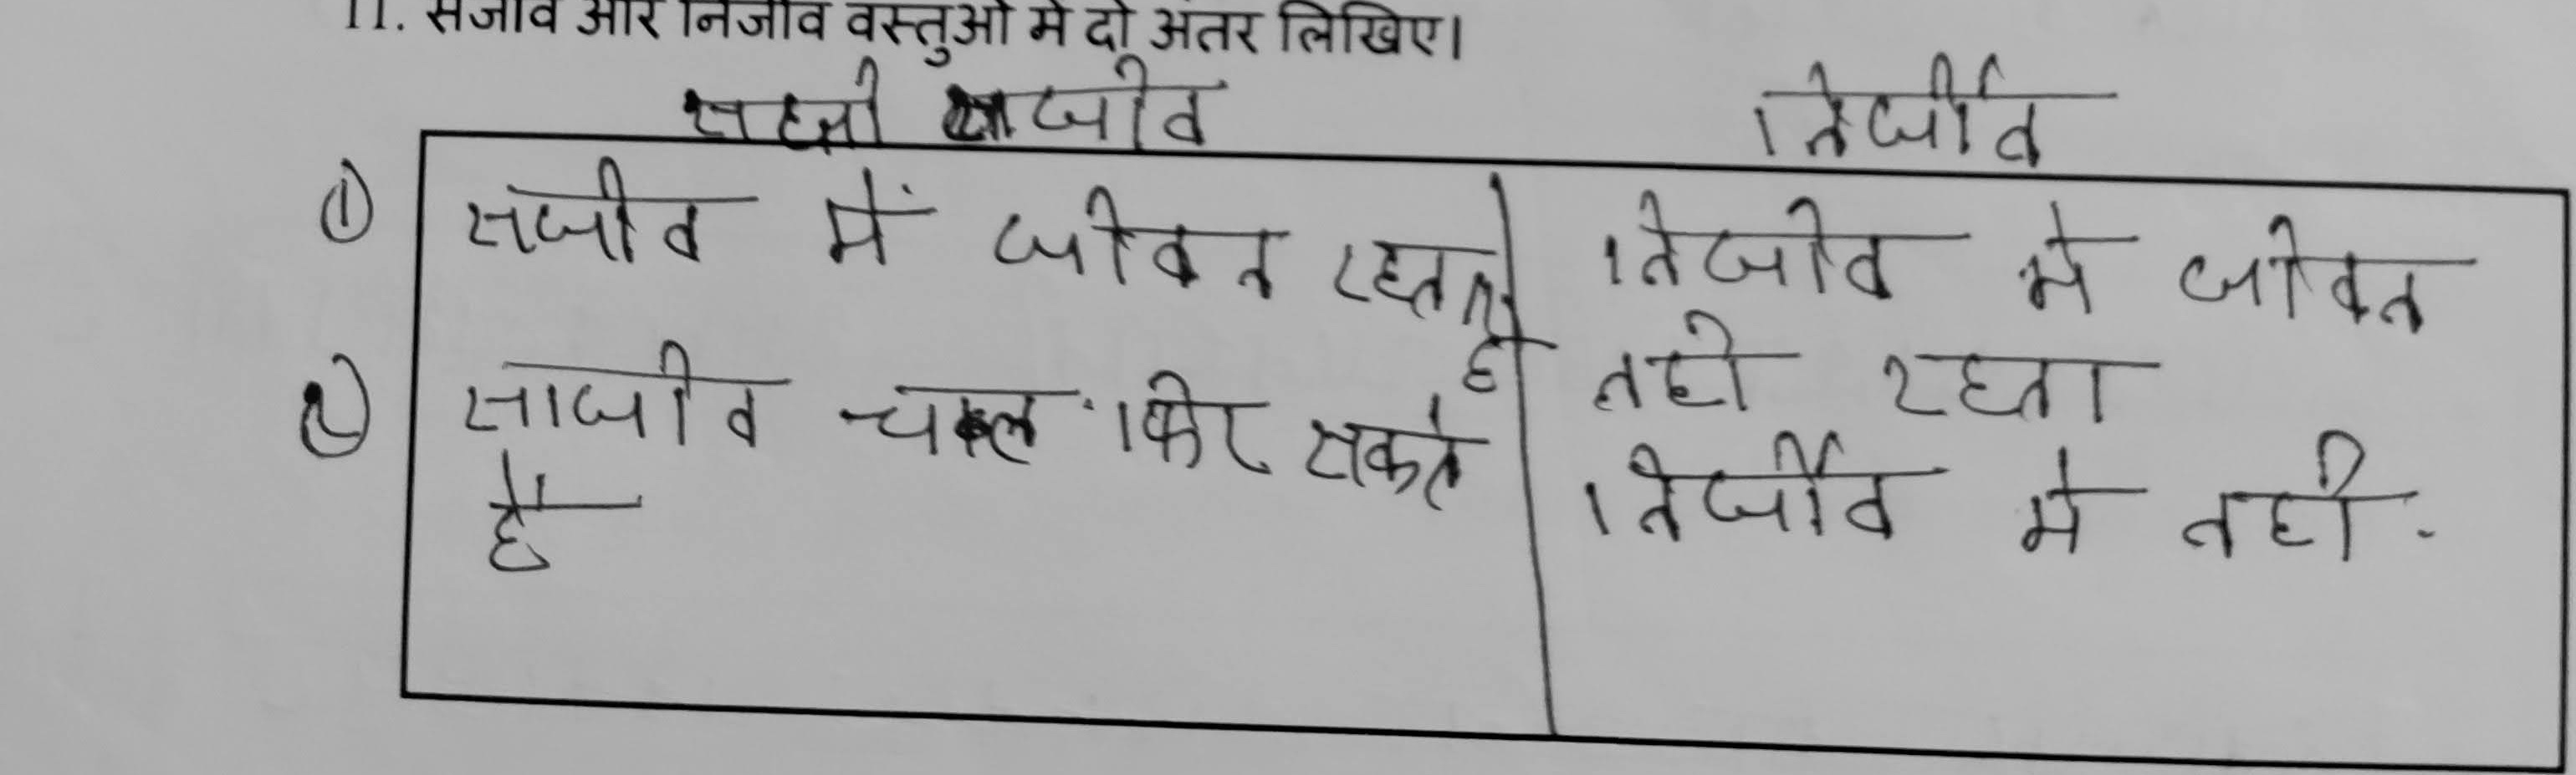 11. सजीव और निर्जीव वस्तुओं में दो अंतर लिखिए।
साजीव निर्जीव
① सजीव में जीवन रहता है निजीव मे जीवन
नही रहता
② साजीव चल फिर सकते निर्जीव मे नही.
है